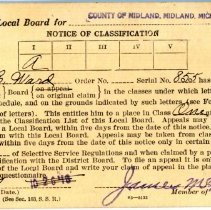 Local Board for COUNTY OF MIDLAND, MIDLAND, MIC
NOTICE OF CLASSIFICATION
I II III IV V
A
Ward Order No. Serial No. 855
Board { on appeal / on original claim } in the classes under which lette
edule, and on the grounds indicated by such letters (see Fo
of letters). This entitles him to a place in Class
the Classification List of this Local Board. Appeals may be
a Local Board, within five days from the date of this notice.
m with this Local Board. Appeals may be taken from clas
within five days from the date of this notice only in certain
of Selective Service Regulations and when claimed by a p
ation with the District Board. To file an appeal it is only
of the claim of appeal and to write your claim in the place
uestionnaire
James M
(Date.)
(See Sec. 103, S. S. R.)